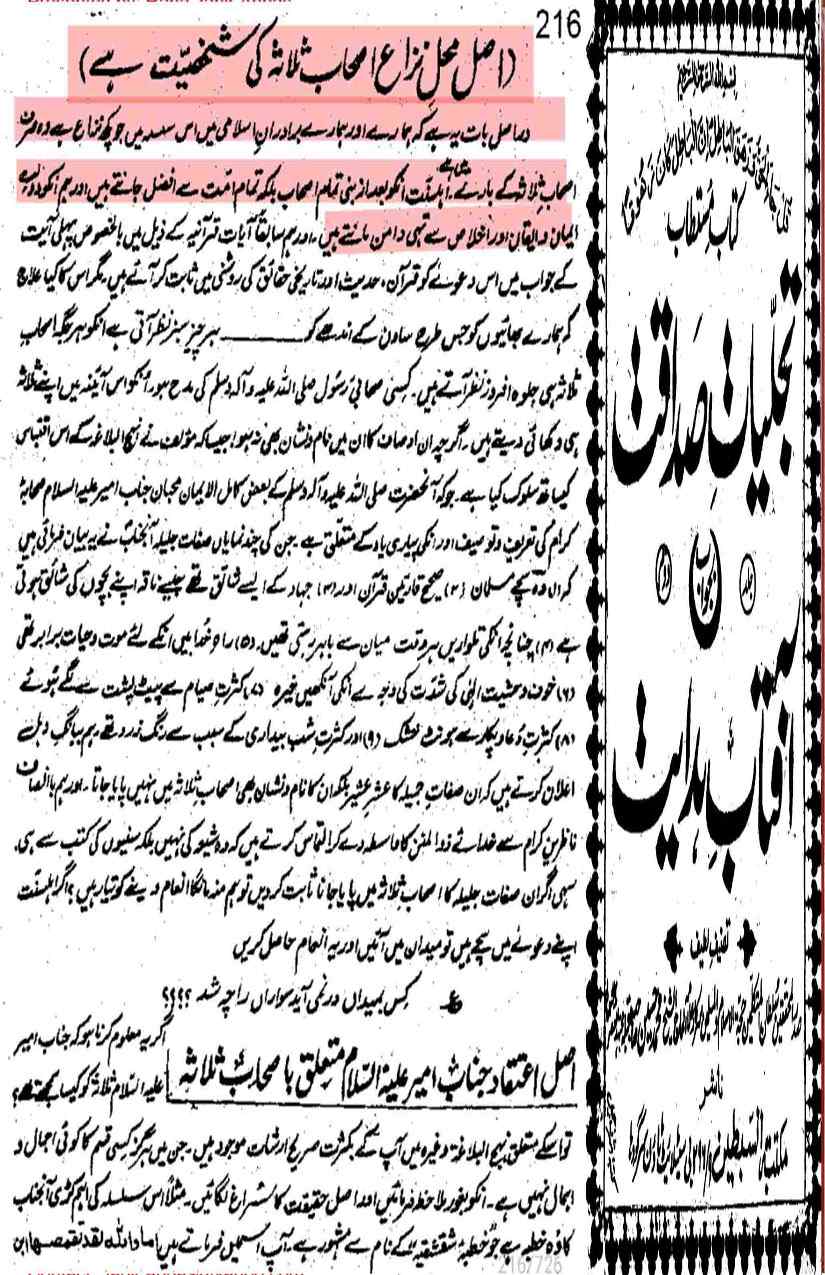 216
(اصل محلِ نزاع اصحاب ثلاثہ کی شخصیّت ہے)
دراصل بات یہ ہے کہ ہمارے اور ہمارے برادرانِ اسلامی میں اس سلسلہ میں جو کچھ نزاع ہے وہ صرف
اصحابِ ثلاثہ کے بارے میں ہے۔ اہلسنّت انکو بعد از نبی تمام اصحاب بلکہ تمام امّت سے افضل جانتے ہیں اور ہم انکو دولتِ
ایمان و ایقان اور اخلاص سے تہی دامن مانتے ہیں۔ اور ہم سابقاً آیات قرآنیہ کے ذیل میں بالخصوص پہلی آیت
کے جواب میں اس دعوےٰ کو قرآن، حدیث اور تاریخی حقائق کی روشنی میں ثابت کر آئے ہیں۔ مگر اس کا کیا علاج
کہ ہمارے بھائیوں کو جس طرح ساون کے اندھے کو ہر چیز سبز نظر آتی ہے انکو ہر جگہ اصحاب
ثلاثہ ہی جلوہ افروز نظر آتے ہیں۔ کسی صحابیٔ رسول صلی اللہ علیہ و آلہ وسلم کی مدح ہو۔ انکو اس آئینہ میں اپنے ثلاثہ
ہی دکھائی دیتے ہیں۔ اگرچہ ان اوصاف کا ان میں نام و نشان بھی نہ ہو! جیسا کہ مؤلف نے نہج البلاغہ کے اس اقتباس
کیساتھ سلوک کیا ہے۔ جو کہ آنحضرت صلی اللہ علیہ و آلہ وسلم کے بعض کامل الایمان محبان جناب امیر علیہ السلام صحابۂ
کرام کی تعریف و توصیف اور انکی پیاری یاد کے متعلّق ہے۔ جن کی چند نمایاں صفات جلیلہ آنجنابؑ نے یہ بیان فرمائی ہیں
کہ (۱) وہ سچے مسلمان (۲) صحیح قارئین قرآن اور (۳) جہاد کے ایسے شائق تھے جیسے ناقہ اپنے بچوں کی شائق ہوتی
ہے (۴) چنانچہ انکی تلواریں ہر وقت میان سے باہر رہتی تھیں۔ (۵) راہِ خدا میں انکے لئے موت و حیات برابر تھی
(۶) خوف و خشیت الٰہی کی شدّت کی وجہ سے انکی آنکھیں خیرہ (۷) کثرتِ صیام سے پیٹ پشت سے لگے ہوئے
(۸) کثرتِ دُعا و پکار سے ہونٹ خشک (۹) اور کثرتِ شب بیداری کے سبب سے رنگ زرد تھے۔ ہم ببانگِ دہل
اعلان کرتے ہیں کہ ان صفات جمیلہ کا عشرِ عشیر بلکہ ان کا نام و نشان بھی اصحابِ ثلاثہ میں نہیں پایا جاتا۔ اور ہم با انصاف
ناظرین کرام سے خدائے ذوالمنن کا واسطہ دے کر التماس کرتے ہیں کہ وہ شیعوں کی نہیں بلکہ سنیوں کی کتب سے ہی
سہی اگر ان صفات جلیلہ کا اصحاب ثلاثہ میں پایا جانا ثابت کر دیں تو ہم منہ مانگا انعام دینے کو تیار ہیں؟ اگر اہلسنّت
اپنے دعوےٰ میں سچے ہیں تو میدان میں آئیں اور یہ انعام حاصل کریں
ع کس بمیداں درنمی آید سواراں را چہ شد ؟؟؟؟
اصل اعتقاد جنابِ امیر علیہ السّلام متعلّق با صحابِ ثلاثہ
اگر یہ معلوم کرنا ہو کہ جناب امیر
علیہ السّلام ثلاثہ کو کیسا سمجھتے تھے؟
تو اسکے متعلق نہج البلاغہ وغیرہ میں آپ کے بکثرت صریح ارشادات موجود ہیں۔ جن میں ہرگز کسی قسم کا کوئی اجمال و
اہمال نہیں ہے۔ انکو بغور ملاحظہ فرمائیں اور اصل حقیقت کا سُراغ لگائیں۔ مثلاً اس سلسلہ کی اہم کڑی آنجناب
کا وہ خطبہ ہے جو خطبۂ شقشقیہ کے نام سے مشہور ہے۔ آپ اسمیں فرماتے ہیں اما واللہ لقد تقمصها ابن
216/726
بسم اللہ الرحمن الرحیم
قل جاء الحق وزهق الباطل ان الباطل كان زهوقا
کتاب مستطاب
تجلّیاتِ صداقت
جلد
بجواب
دوم
آفتابِ ہدایت
تصنیف لطیف
ناشر
مکتبۃ السبطین سیٹلائٹ ٹاؤن سرگودہا